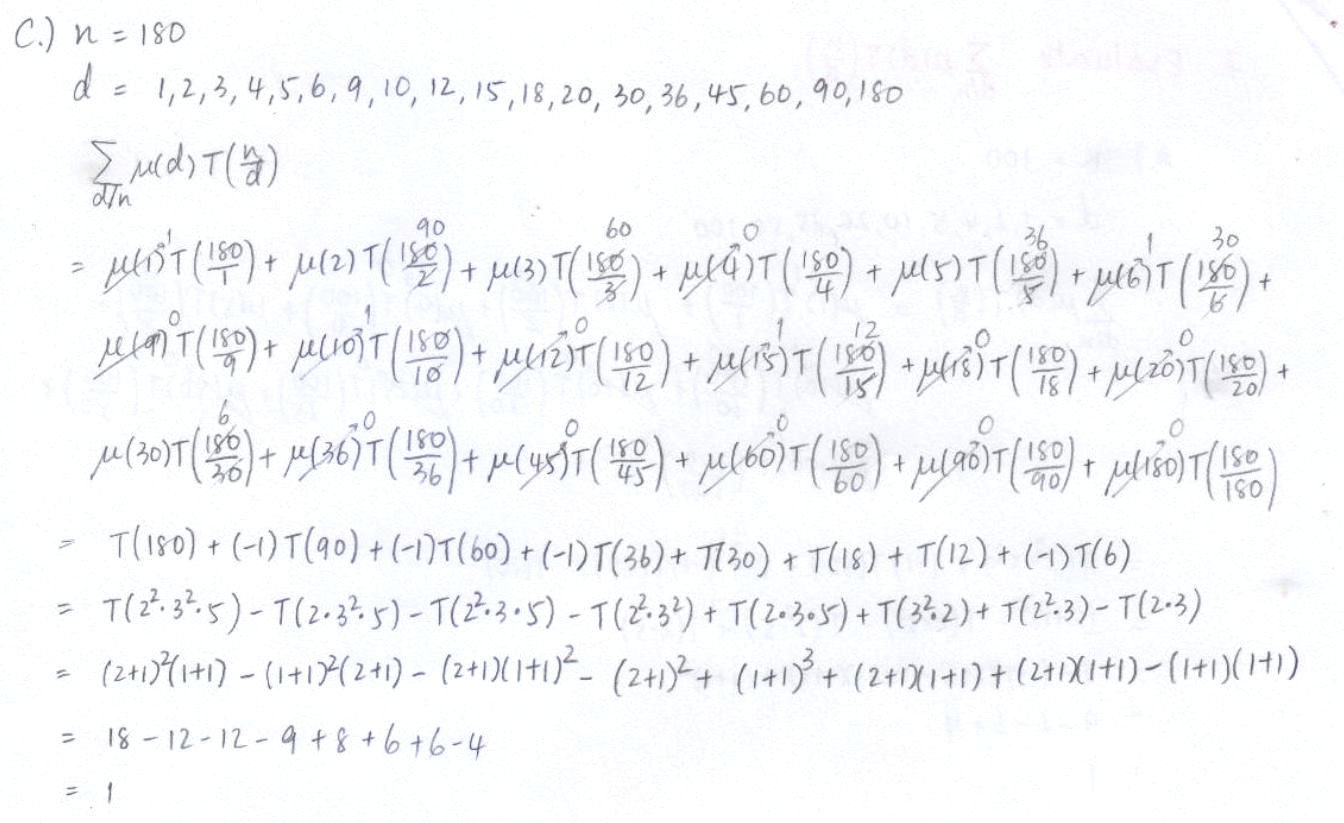 C.) n = 180
d = 1,2,3,4,5,6,9,10,12,15,18,20,30,36,45,60,90,180
∑_{d|n} μ(d) T(n/d)
= μ(1)^1 T(180/1) + μ(2) T(180/2)^90 + μ(3) T(180/3)^60 + μ(4)^0 T(180/4) + μ(5) T(180/5)^36 + μ(6)^1 T(180/6)^30 +
μ(9)^0 T(180/9) + μ(10)^1 T(180/10) + μ(12)^0 T(180/12) + μ(15)^1 T(180/15)^12 + μ(18)^0 T(180/18) + μ(20)^0 T(180/20) +
μ(30) T(180/30)^6 + μ(36)^0 T(180/36) + μ(45)^0 T(180/45) + μ(60)^0 T(180/60) + μ(90)^0 T(180/90) + μ(180)^0 T(180/180)
= T(180) + (-1)T(90) + (-1)T(60) + (-1)T(36) + T(30) + T(18) + T(12) + (-1)T(6)
= T(2²·3²·5) - T(2·3²·5) - T(2²·3·5) - T(2²·3²) + T(2·3·5) + T(3²·2) + T(2²·3) - T(2·3)
= (2+1)²(1+1) - (1+1)²(2+1) - (2+1)(1+1)² - (2+1)² + (1+1)³ + (2+1)(1+1) + (2+1)(1+1) - (1+1)(1+1)
= 18 - 12 - 12 - 9 + 8 + 6 + 6 - 4
= 1